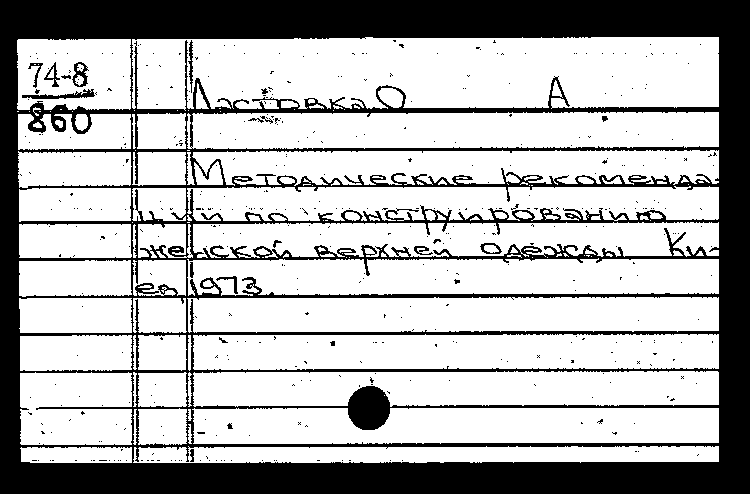 74-8
860
Ластовка, О А
Методические рекоменда-
ции по конструированию
женской верхней одежды Ки-
ев, 1973.